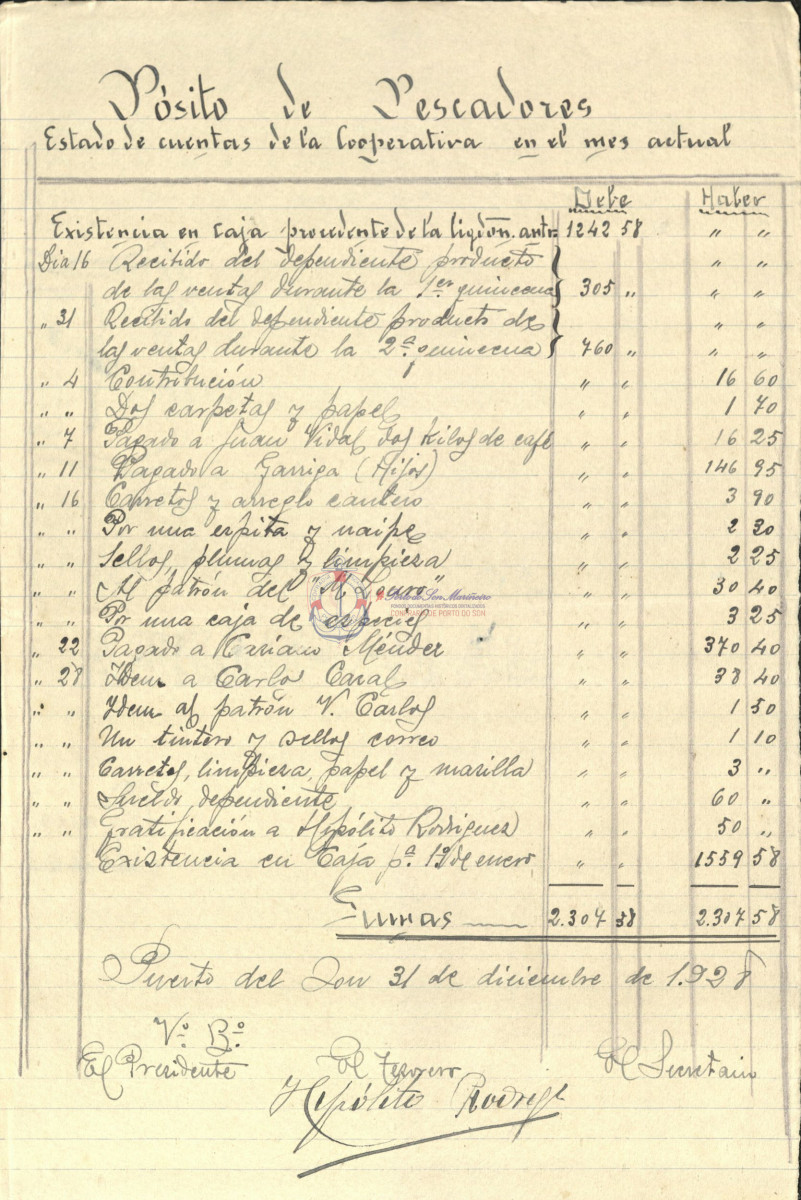 Pósito de Pescadores
Estado de cuentas de la Cooperativa en el mes actual
Debe Haber
Existencia en caja procedente de la liqión. antr. 1242 58 " "
Dia 16 Recibido del dependiente producto " "
de las ventas durante la 1er quincena 305 " " "
" 31 Recibido del dependiente producto de " "
las ventas durante la 2ª. quincena 760 " " "
" 4 Contribución " " 16 60
" " Dos carpetas y papel " " 1 70
" 7 Pagado a Juan Vidal dos kilos de café " " 16 25
" 11 Pagado a Garriga (Hijos) " " 146 95
" 16 Carretos y arreglo cantero " " 3 90
" " Por una espita y naipe " " 2 30
" " Sellos, plumas y limpieza " " 2 25
" " Al patrón del "M. Louro" " " 30 40
" " Por una caja de especies " " 3 25
" 22 Pagado a Mariano Méndez " " 370 40
" 28 Idem a Carlos Casal " " 38 40
" " Idem al patrón V. Carlos " " 1 50
" " Un tintero y sellos correo " " 1 10
" " Carretos, limpieza, papel y masilla " " 3 "
" " Sueldo dependiente " " 60 "
" " Gratificación a Hipólito Rodriguez " " 50 "
Existencia en Caja pª. 1º de enero " " 1559 58
Sumas 2.307 58 2.307 58
Puerto del Son 31 de diciembre de 1.928
Vº. Bº.
El Presidente El Tesorero El Secretario
Hipólito Rodregz
Porto do Son Mariñeiro
CONFRARÍA DE PORTO DO SON